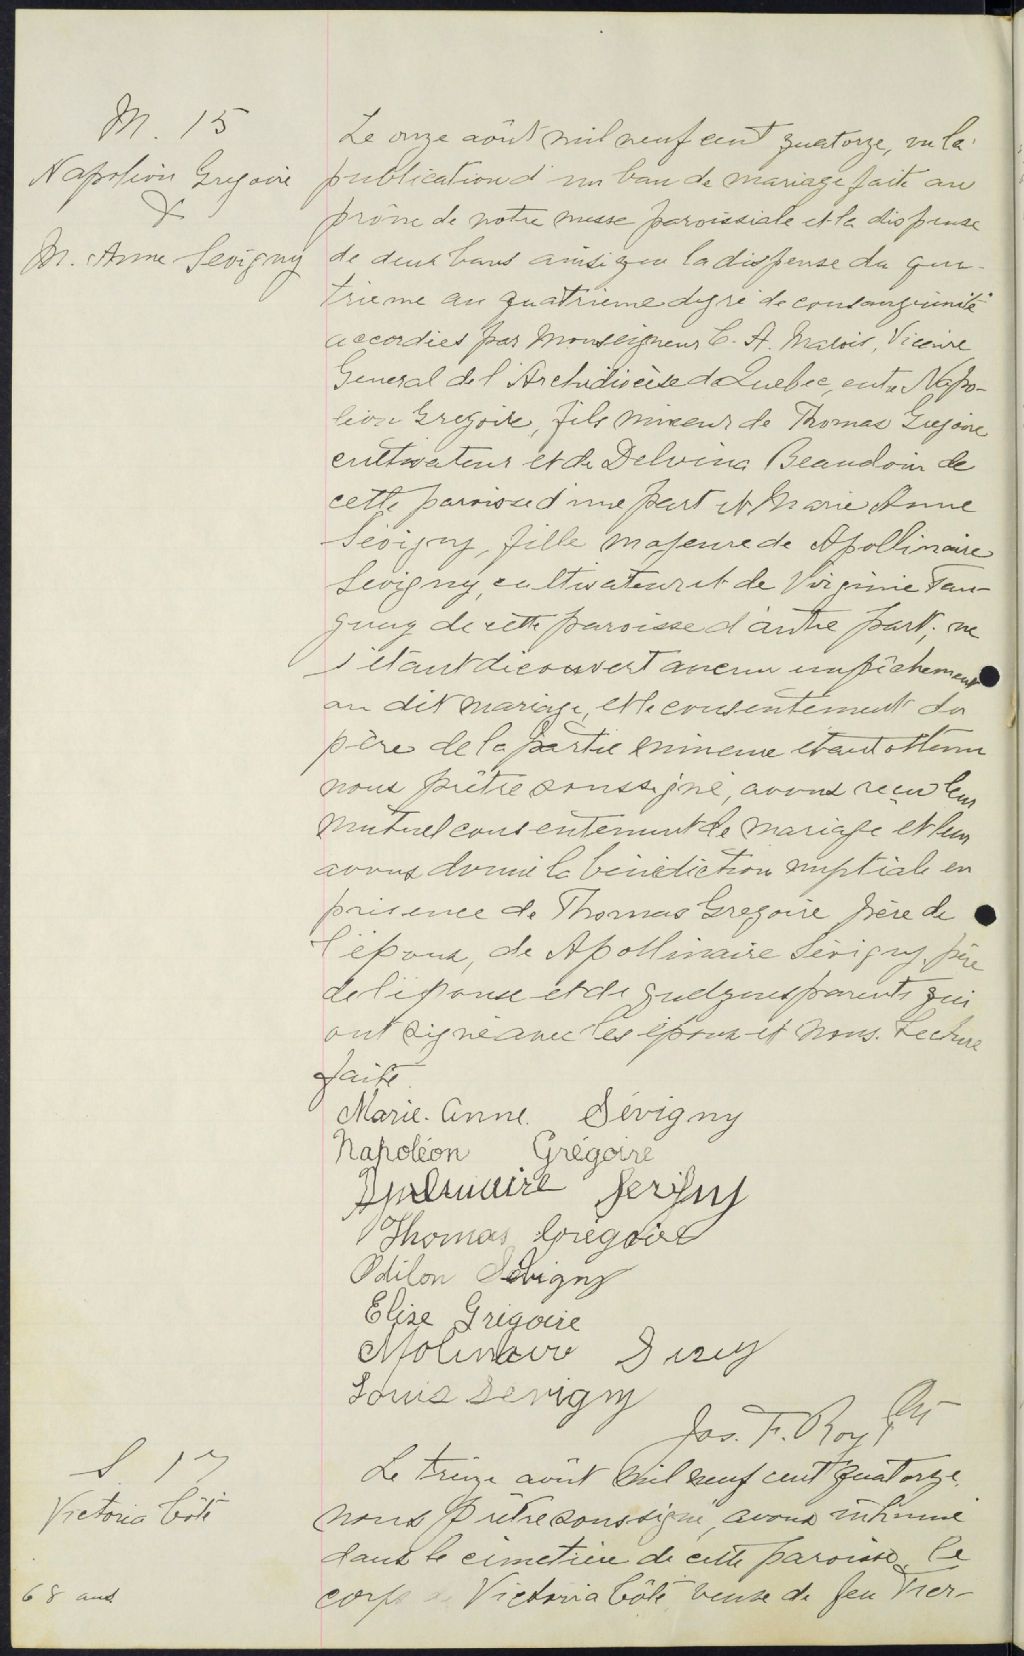 M. 15
Napoléon Gregoire
&
M. Anne Sevigny
Le onze août mil neuf cent quatorze, vu la
publication d'un ban de mariage faite au
prône de notre messe paroissiale et la dispense
de deux bans ainsi que la dispense du qua-
trieme au quatrieme degré de consanguinité
accordées par Monseigneur C. A. Marois, Vicaire
General de l'Archidiocèse de Quebec, entre Napo-
léon Gregoire, fils mineur de Thomas Gregoire
cultivateur et de Delvina Beaudoin de
cette paroisse d'une part et Marie Anne
Sévigny, fille majeure de Apollinaire
Sevigny, cultivateur et de Virginie Tan-
guay de cette paroisse d'autre part; ne
s'étant découvert aucun empêchement
au dit mariage, et le consentement du
père de la partie mineure étant obtenu
nous prêtre soussigné, avons reçu leur
mutuel consentement de mariage et leur
avons donné la bénédiction nuptiale en
présence de Thomas Gregoire père de
l'époux, de Apollinaire Sévigny, père
de l'épouse et de quelques parents qui
ont signé avec les époux et nous. Lecture
faite.
Marie-Anne Sévigny
Napoléon Grégoire
Apolinaire Sevigny
Thomas Grégoire
Odilon Sévigny
Elise Grégoire
Louis Sevigny
Jos. F. Roy Ptre
S 17
Victoria Côté
68 ans
Le treize août mil neuf cent quatorze,
nous prêtre soussigné, avons inhumé
dans le cimetière de cette paroisse, le
corps de Victoria Côté veuve de feu Pier-